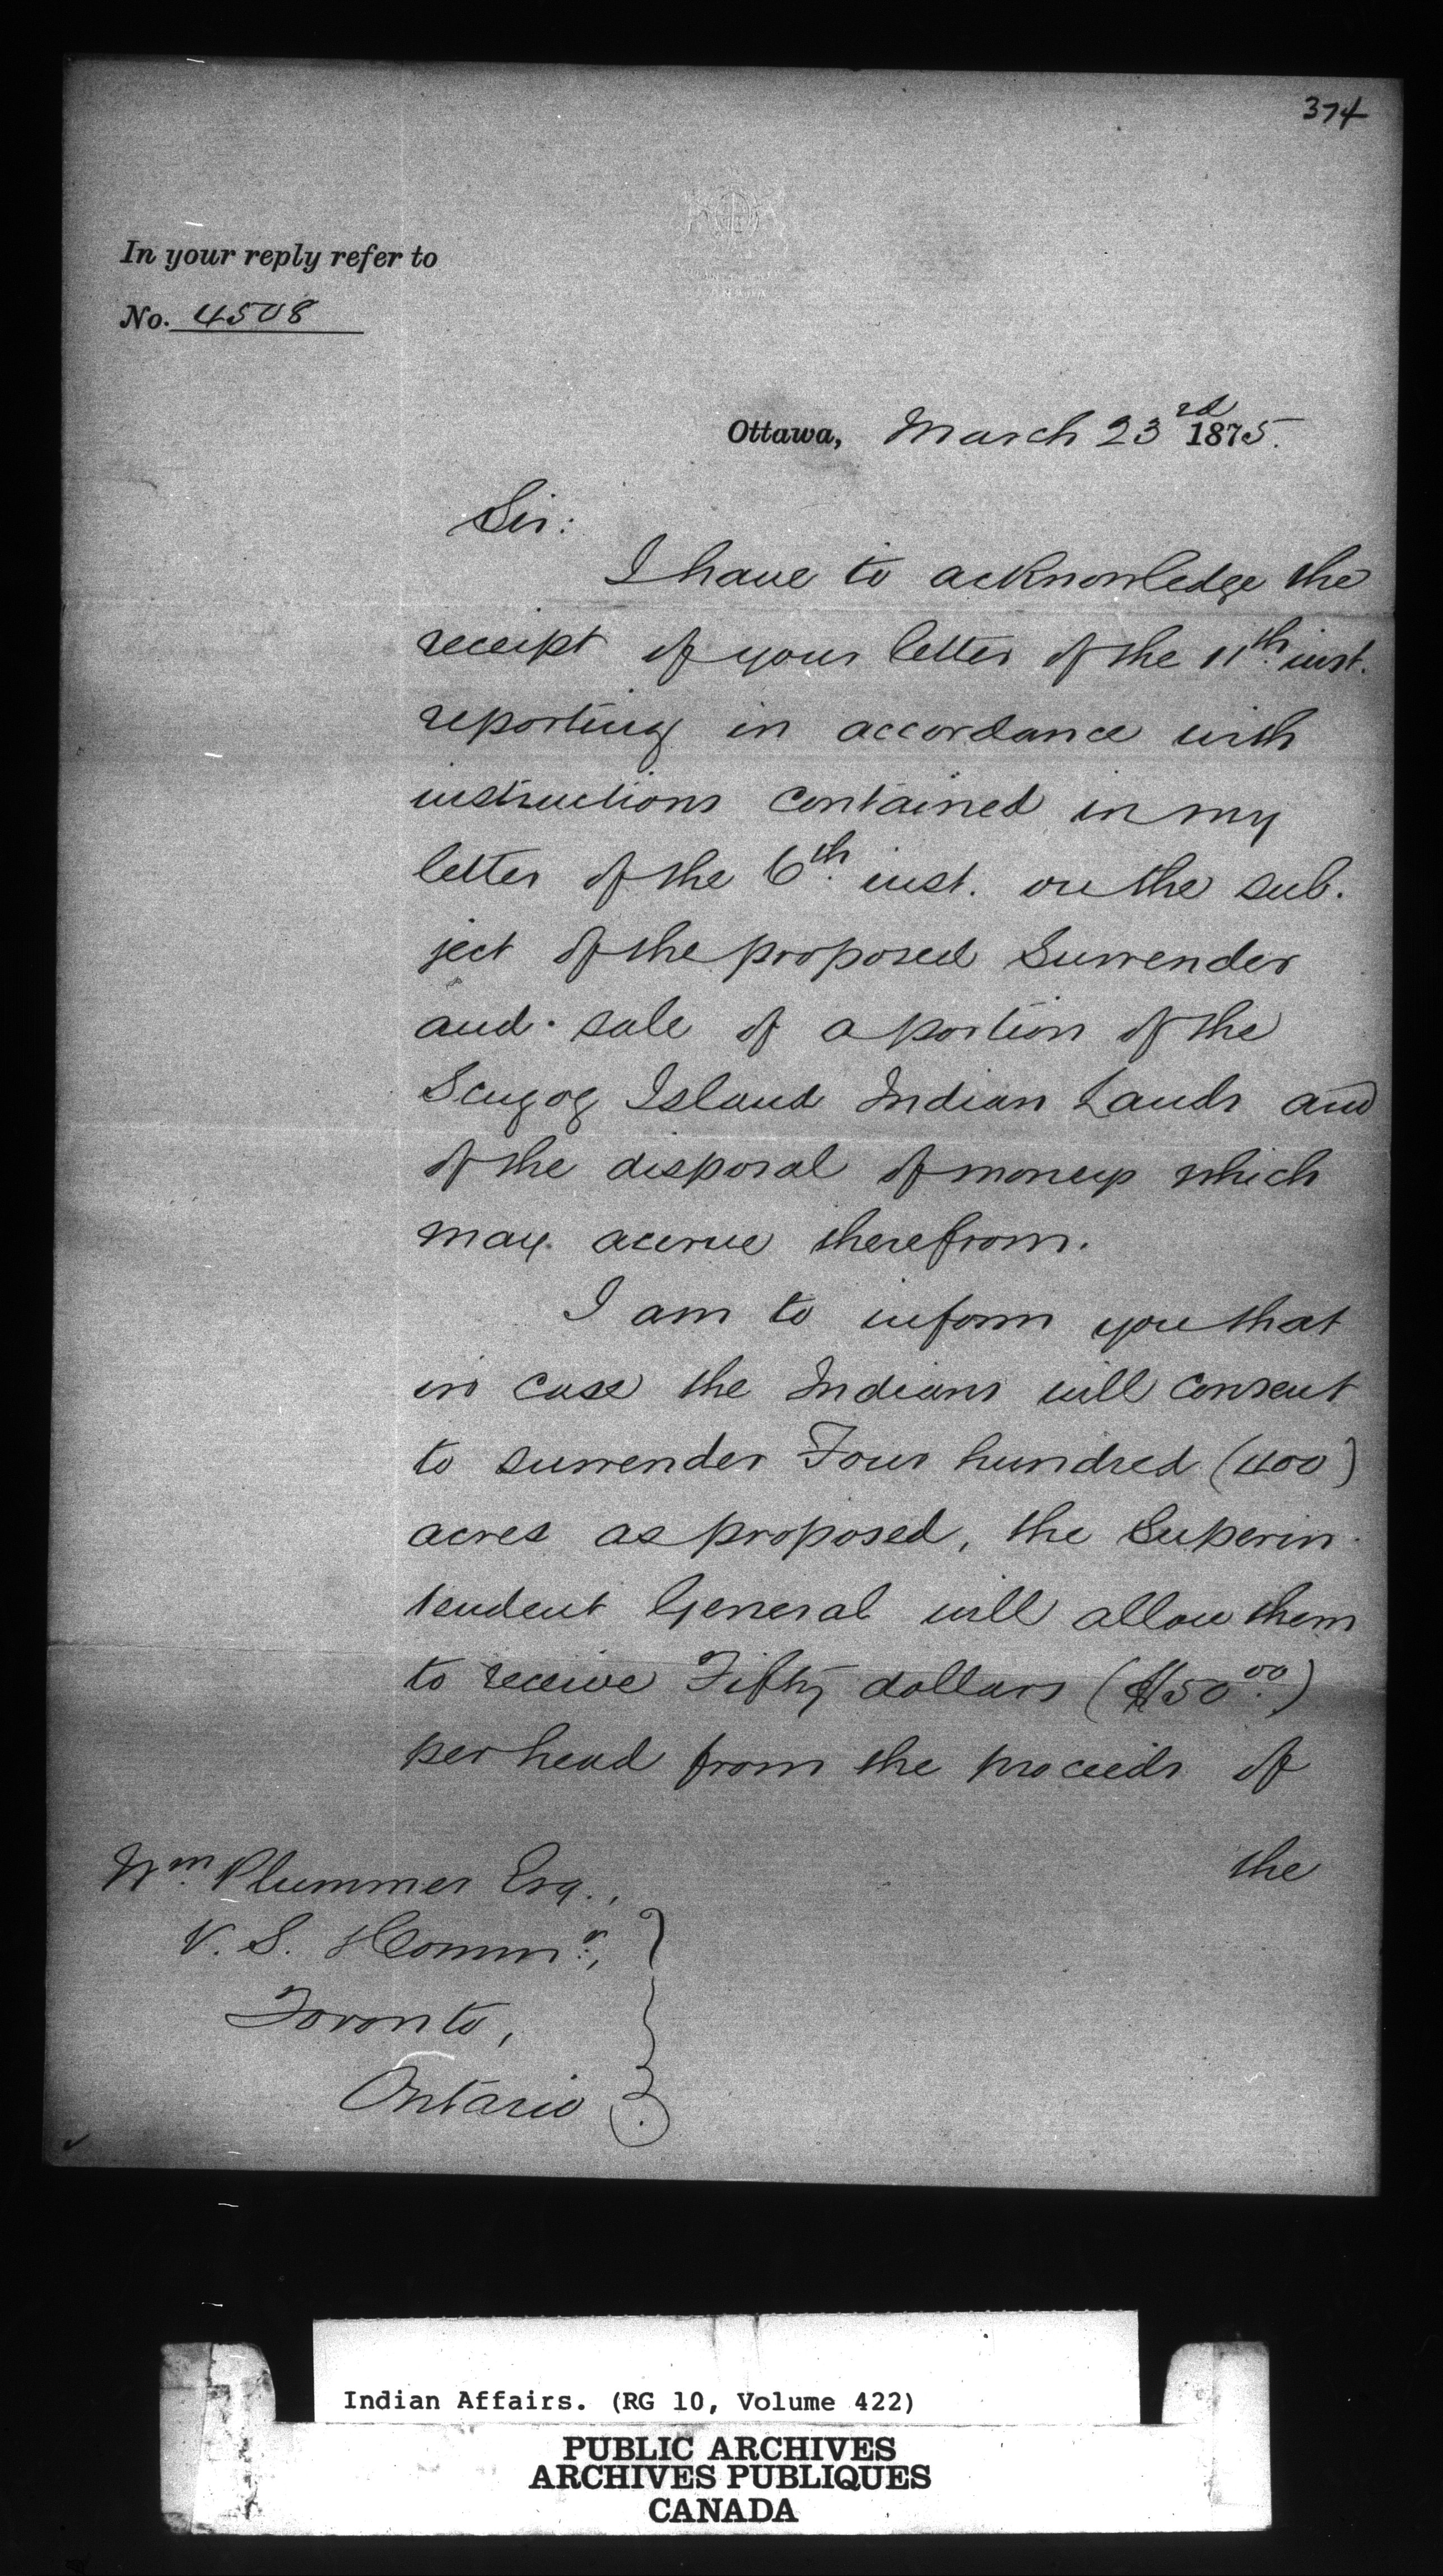 374
In your reply refer to
No. 4508
Ottawa, March 23rd 1875.
Sir:
I have to acknowledge the
receipt of your letter of the 11th. inst.
reporting in accordance with
instructions contained in my
letter of the 6th. inst. on the sub-
ject of the proposed Surrender
and sale of a portion of the
Scugog Island Indian Lands and
of the disposal of moneys which
may accrue therefrom.
I am to inform you that
in case the Indians will consent
to surrender Four hundred (400)
acres as proposed, the Superin-
tendent General will allow them
to receive Fifty dollars ($50.00)
per head from the proceeds of
the
Wm. Plummer Esq.,
V. S. & Commr.,
Toronto,
Ontario.
Indian Affairs. (RG 10, Volume 422)
PUBLIC ARCHIVES
ARCHIVES PUBLIQUES
CANADA